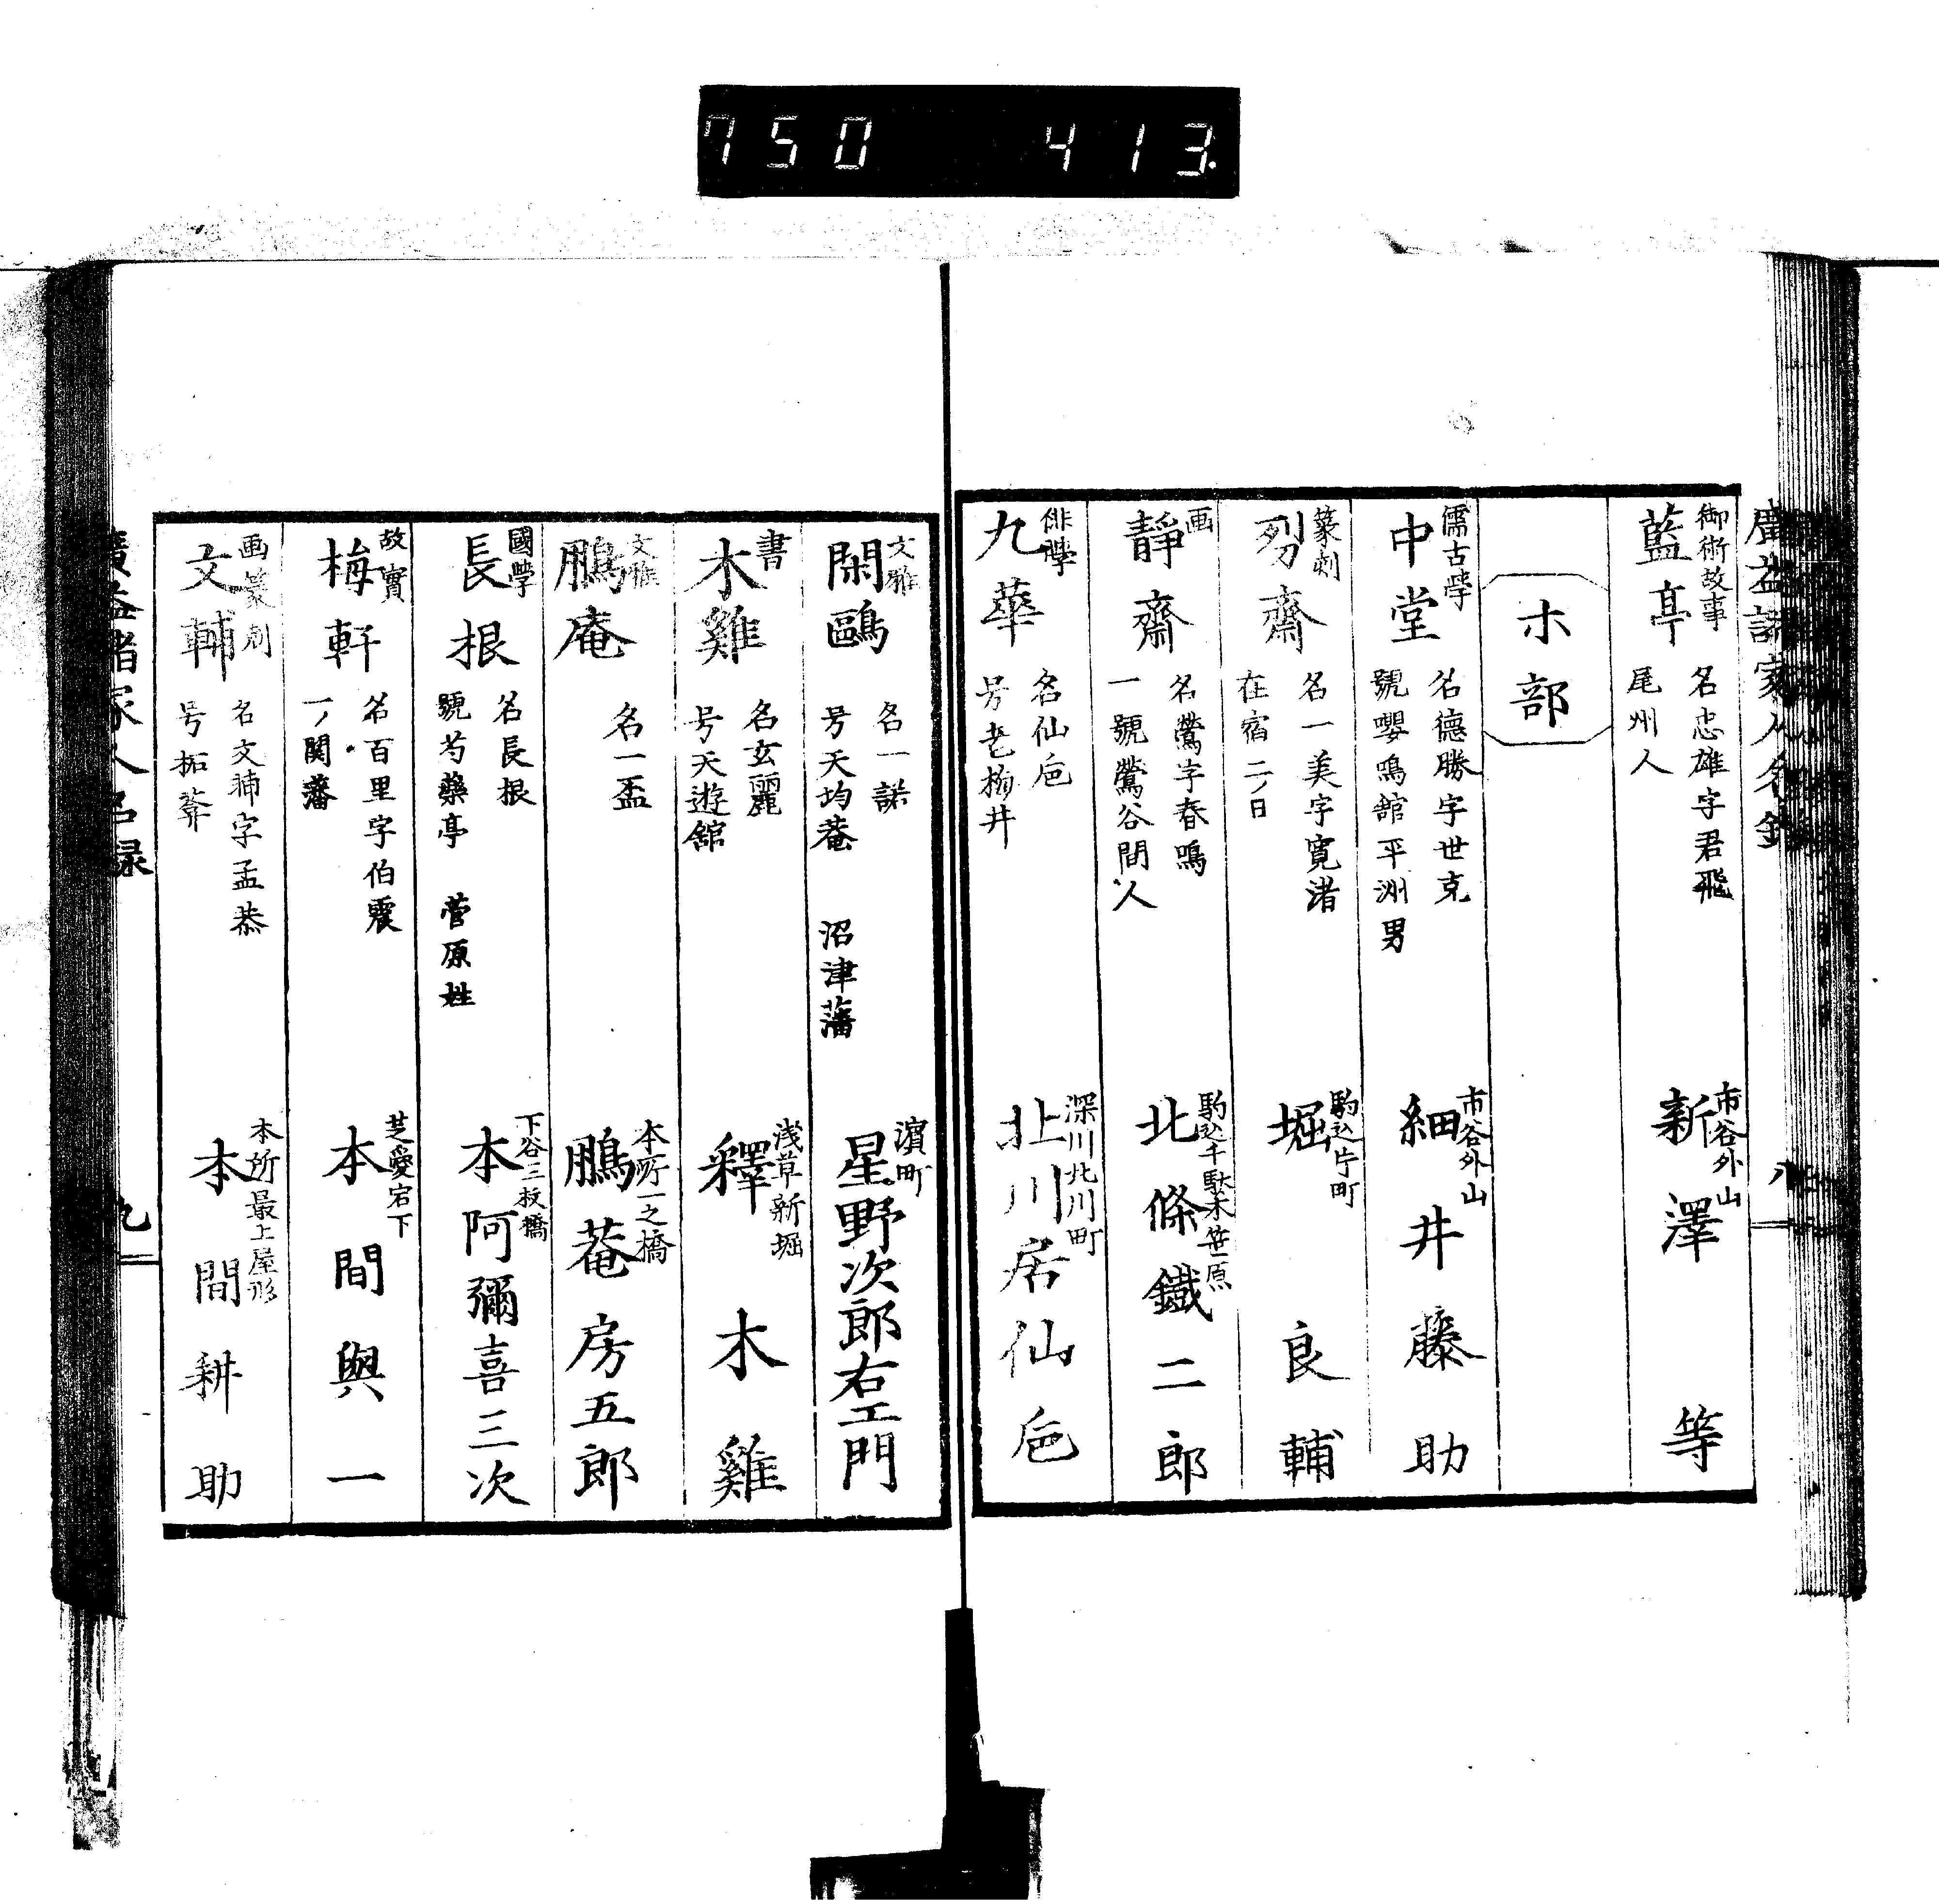 750 413
廣益諸家人名錄
八
御術故事
藍亭
名忠雄字君飛
尾州人
市谷外山
新澤等
ホ部
儒古學
中堂
名德勝字世克
號嚶鳴舘平洲男
市谷外山
細井藤助
篆刻
刕齋
名一美字寬渚
在宿二ノ日
駒込片町
堀良輔
画
靜齋
名鶯字春鳴
一號鶯谷間人
駒込千駄木笹原
北條鐵二郎
俳學
九華
名仙巵
号老梅井
深川北川町
北川居仙巵
文雅
閑鷗
名一諾
号天均菴
沼津藩
濱町
星野次郎右工門
書
木雞
名玄麗
号天遊舘
浅草新堀
釋木雞
文雅
鵬庵
名一盃
本所一之橋
鵬菴房五郎
國學
長根
名長根
號芍藥亭
菅原姓
下谷三枚橋
本阿彌喜三次
故實
梅軒
名百里字伯震
一ノ関藩
芝愛宕下
本間與一
画篆刻
文輔
名文輔字孟恭
号拓葊
本所最上屋形
本間耕助
廣益諸家人名録
九